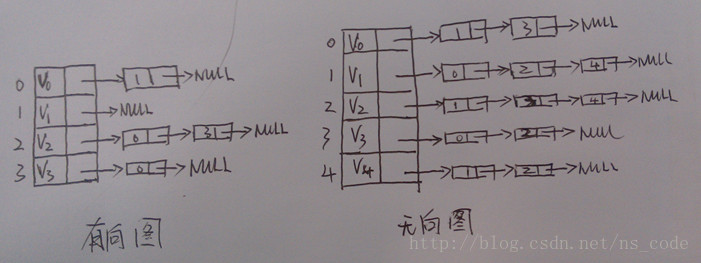 0 V₀ 1 NULL
1 V₁ NULL
2 V₂ 0 3 NULL
3 V₃ 0 NULL
有向图
0 V₀ 1 3 NULL
1 V₁ 0 2 4 NULL
2 V₂ 1 3 4 NULL
3 V₃ 0 2 NULL
4 V₄ 1 2 NULL
无向图
http://blog.csdn.net/ns_code